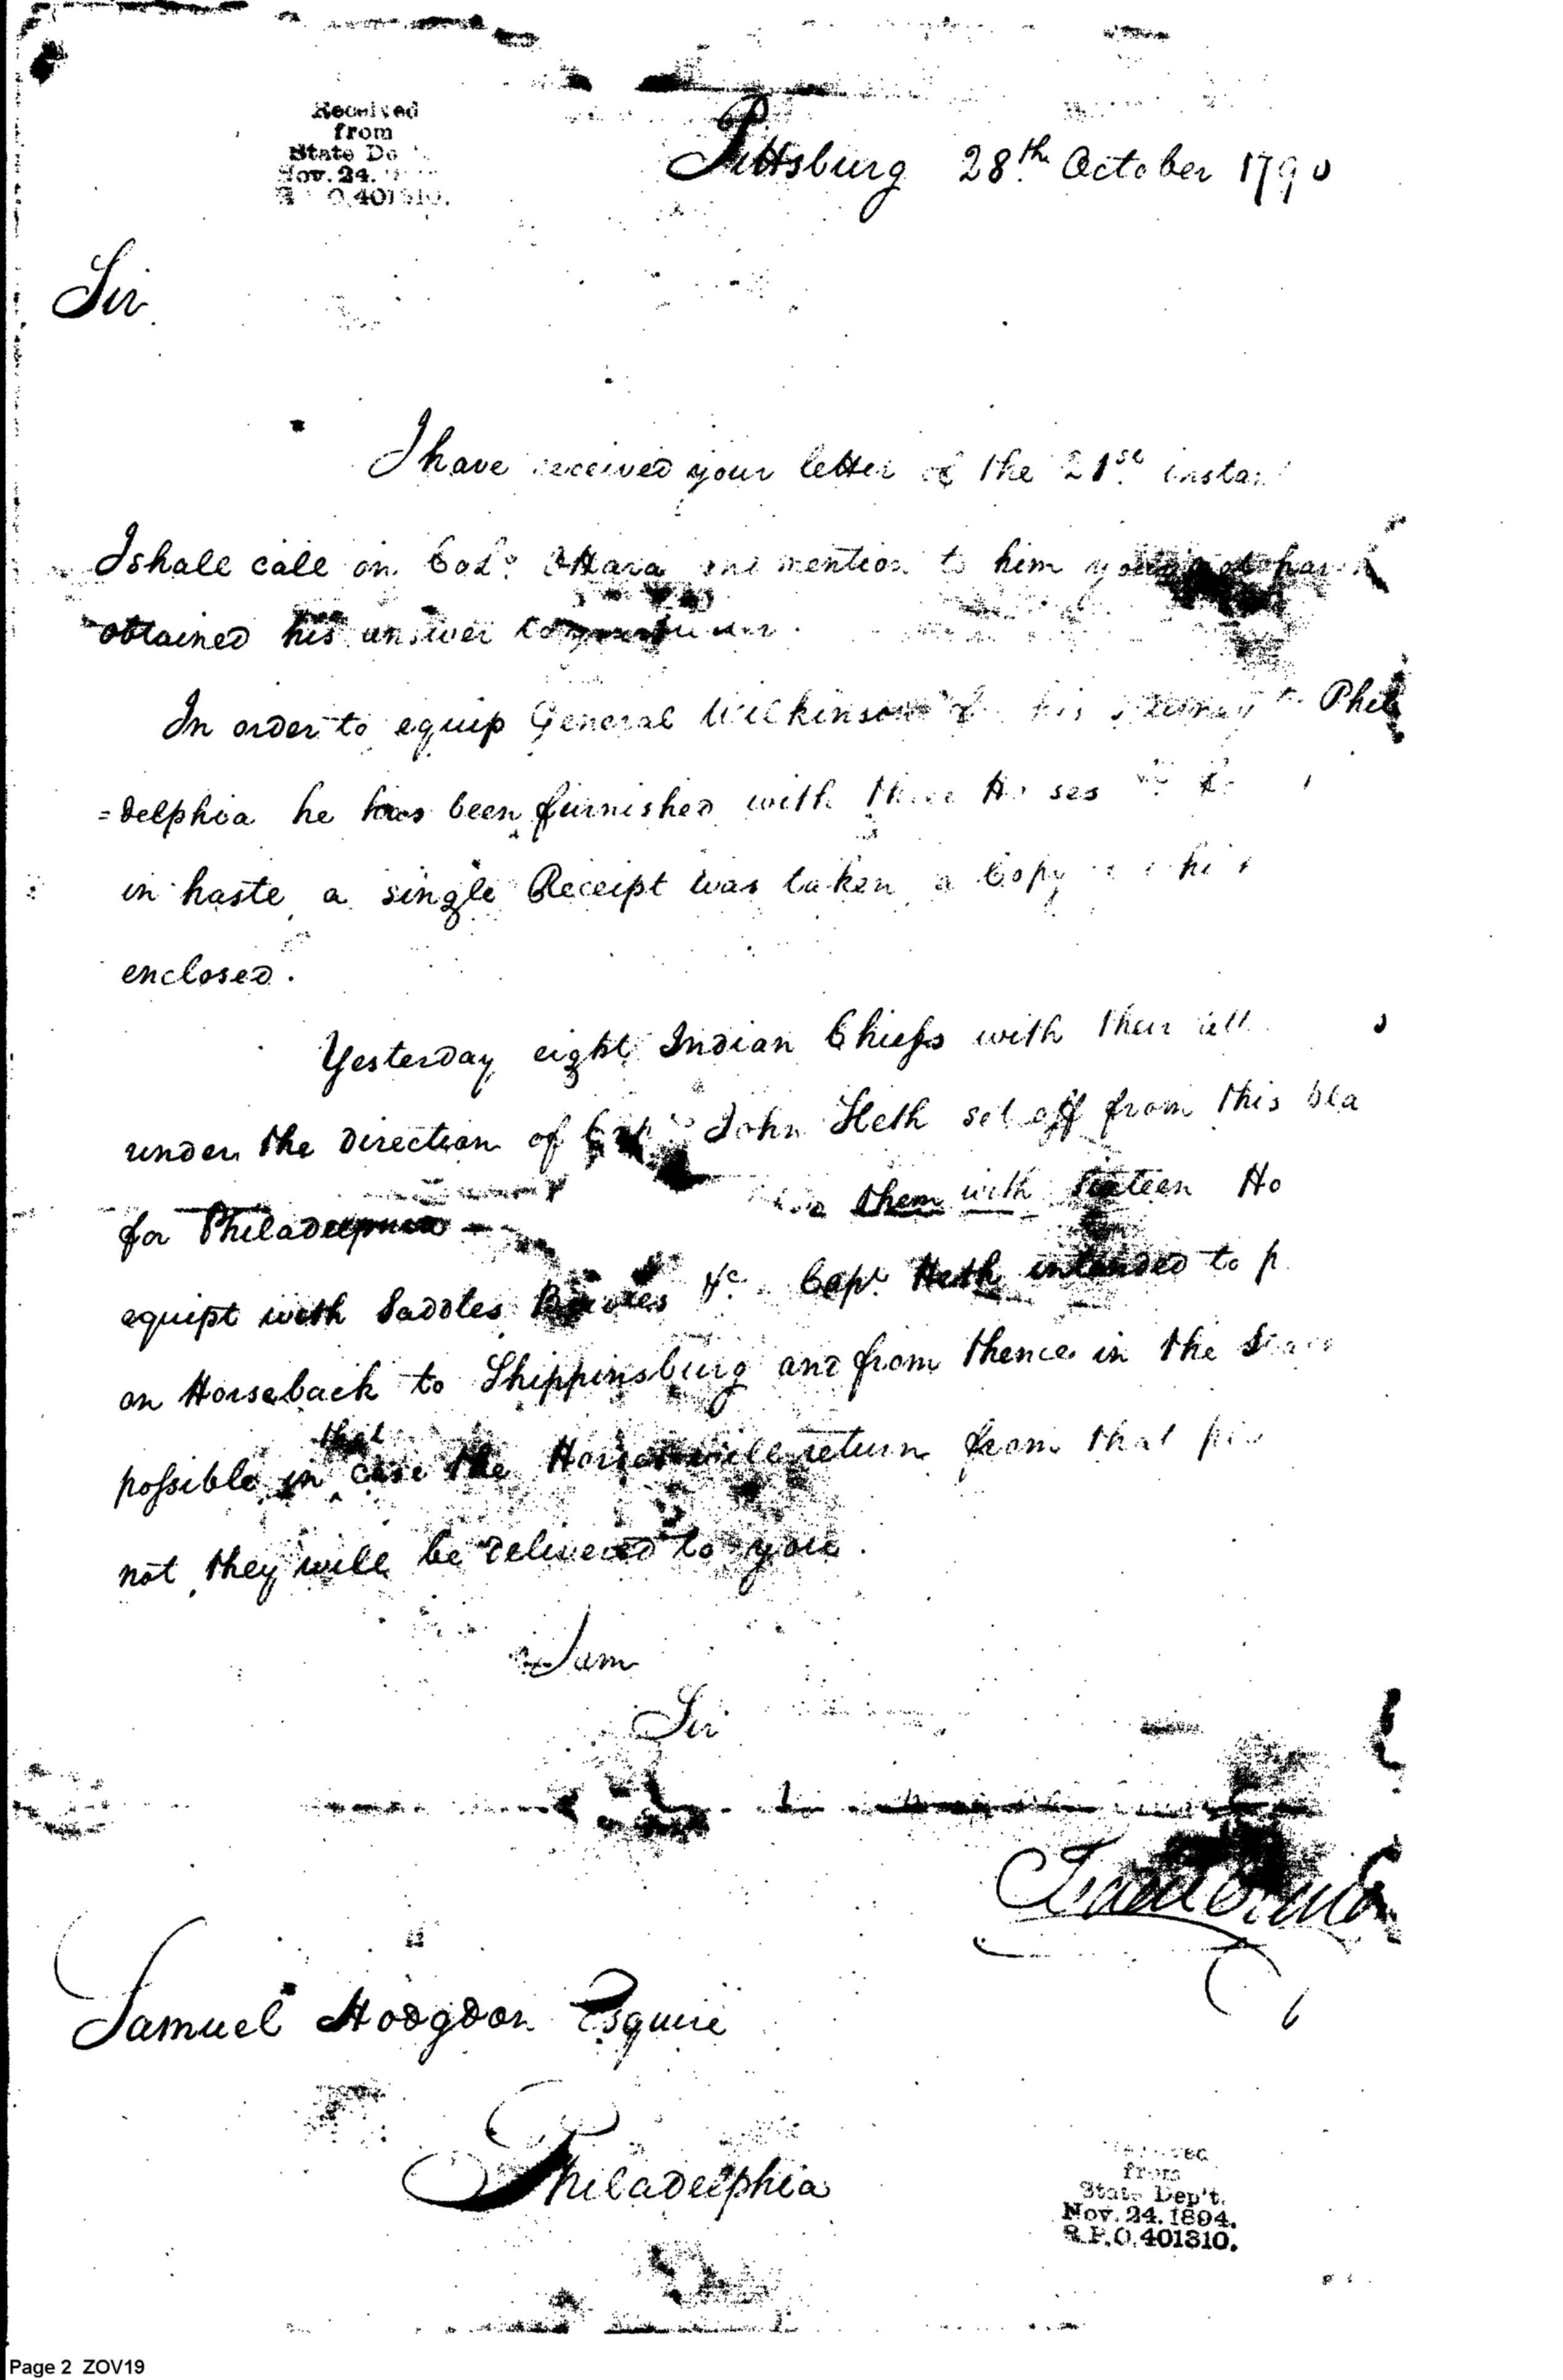 Received
from
State De
Nov. 24.
Pittsburg 28th October 1790
Sir
I have received your letter of the 21st instan
I shall call on Colo. OHara and mention to him your not
obtained his answer to
In order to equip General Wilkinson his to Phil
=delphia he has been furnished with three Horses
in haste a single Receipt was taken a Copy
enclosed.
Yesterday eight Indian Chiefs with their
under the direction of Capt. John Heth set off from this pla
for Philadelphia them with sixteen Ho
equipt with Saddles Bridles &c. Capt. Heth intended to p
on Horseback to Shippinsburg and from thence in the
possible in that case the Horses will return from that
not they will be delivered to you.
I am
Sir
Samuel Hodgdon Esquire
Philadelphia
from
State Dep't.
Nov. 24. 1894.
R.P.O. 401310.
Page 2 ZOV19